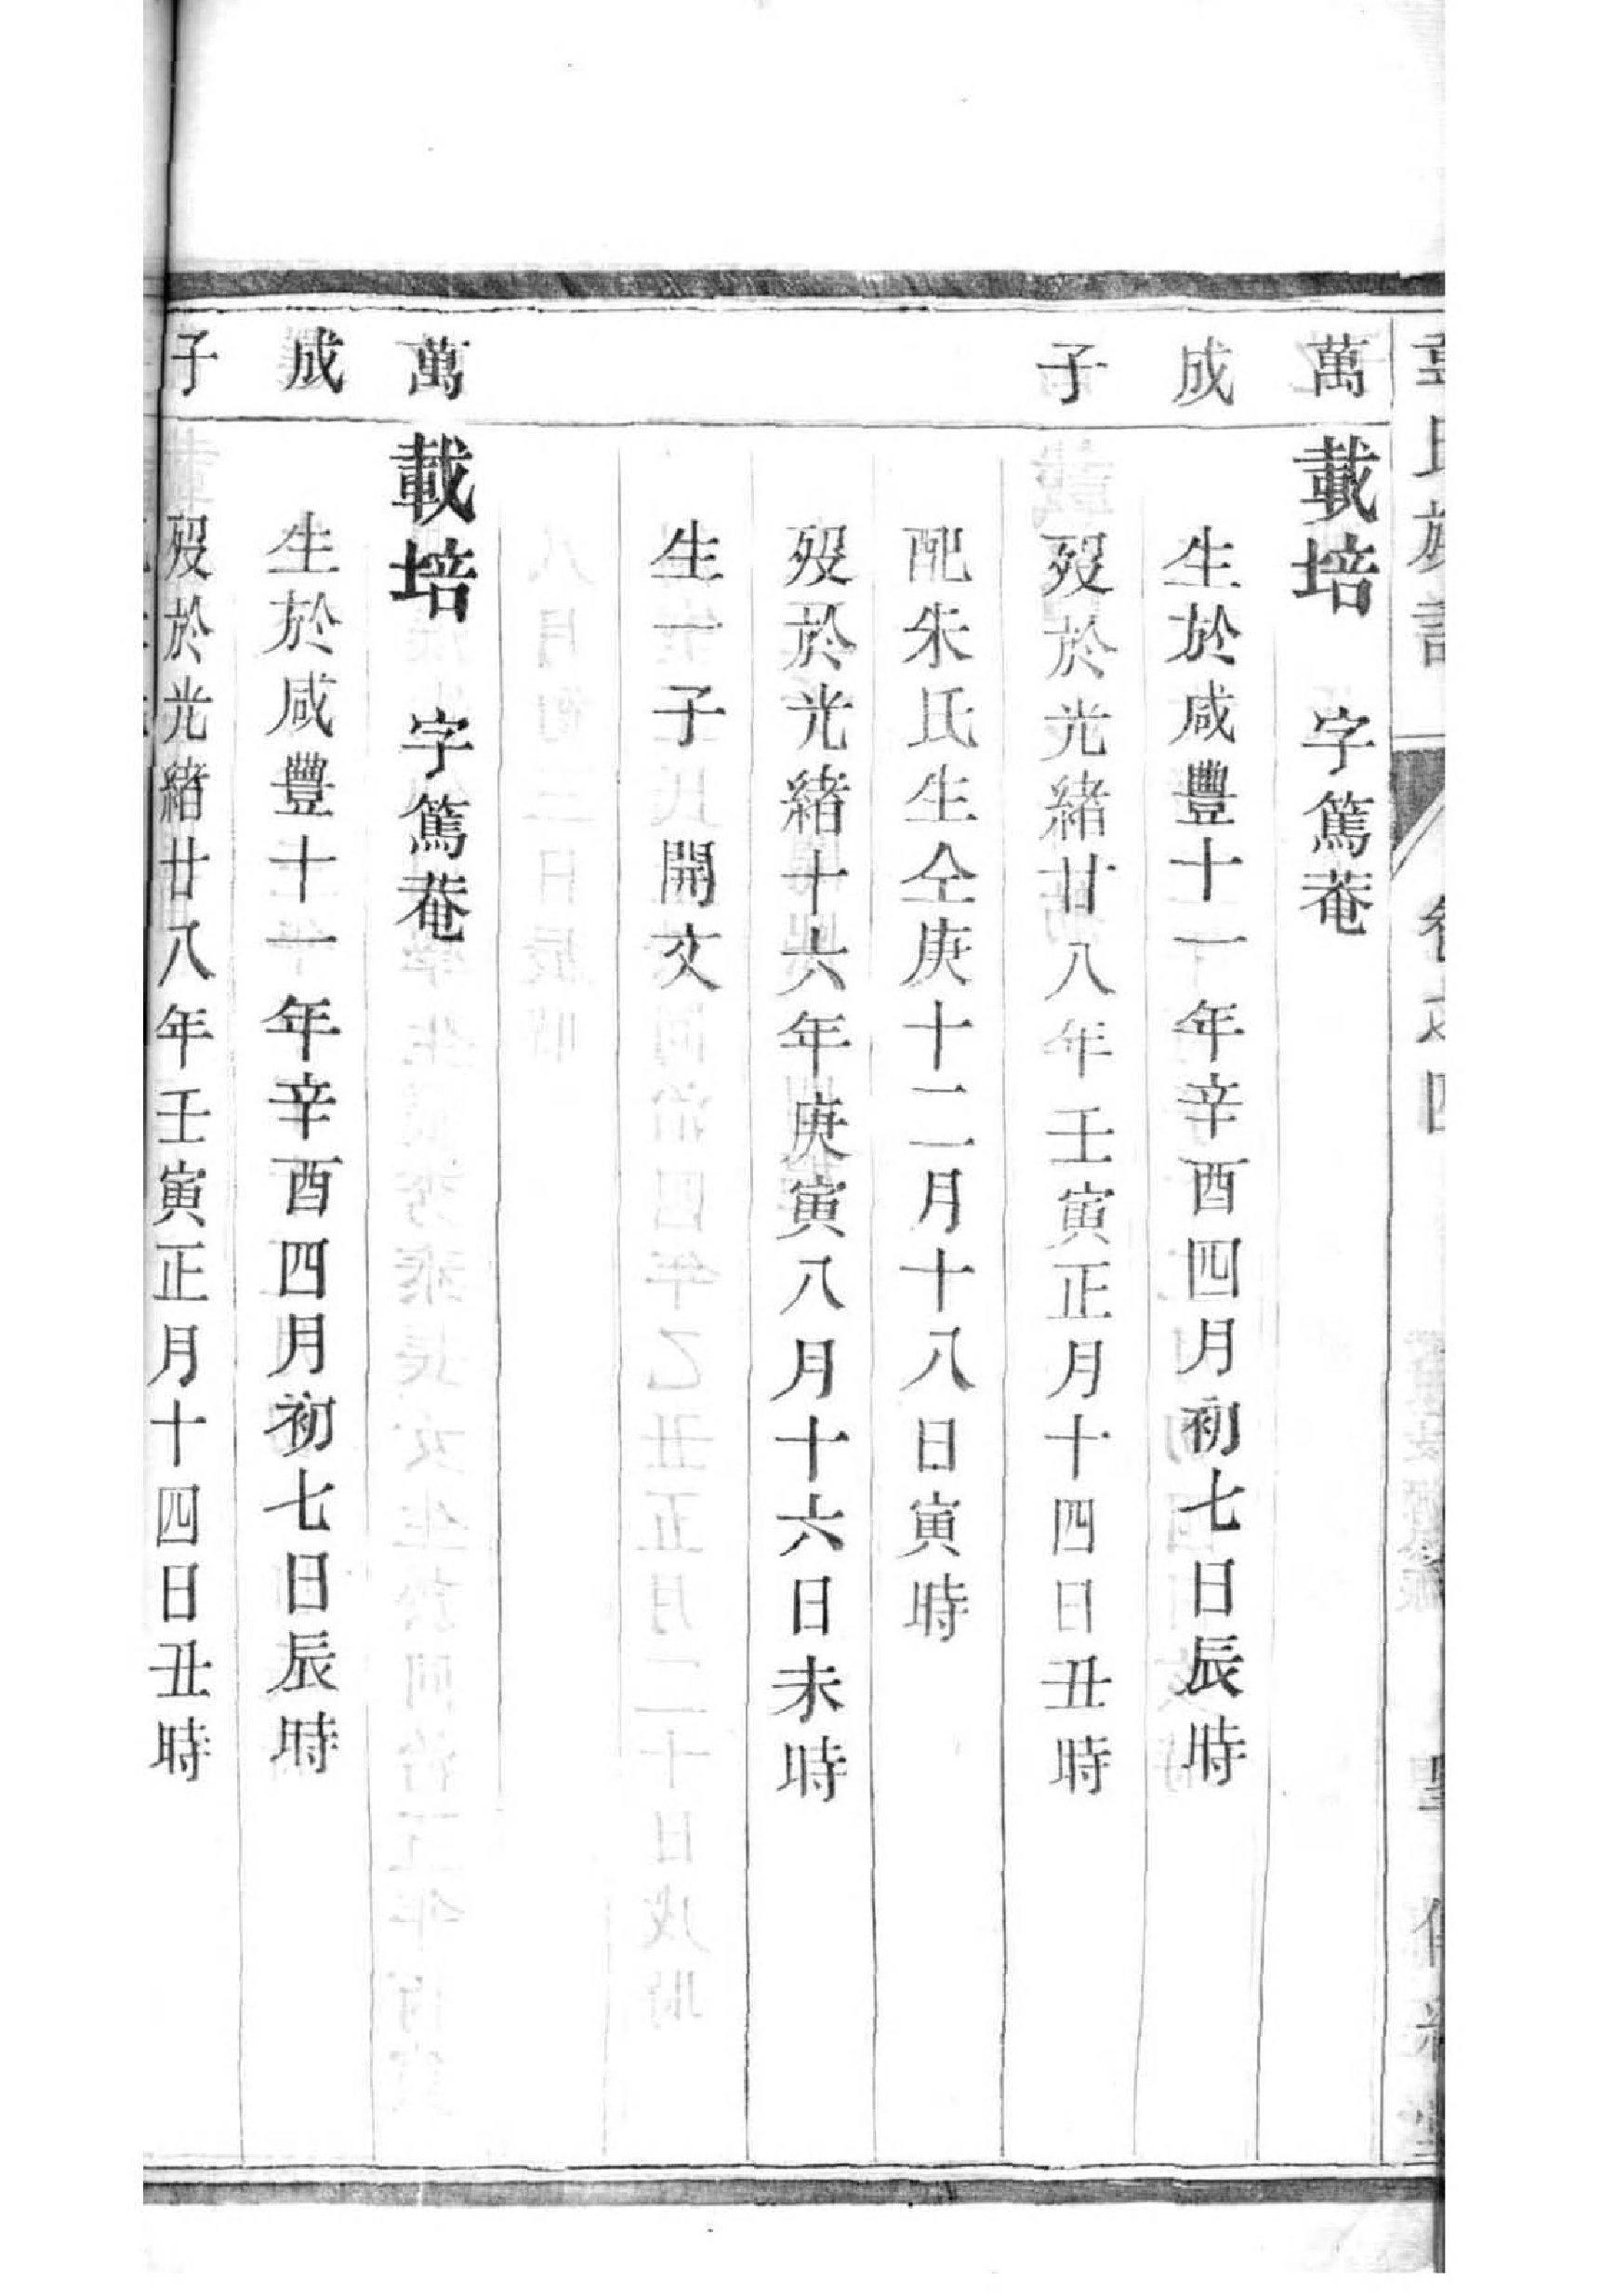 氏族譜 卷之四
萬成子
載培 字篤菴
生於咸豐十一年辛酉四月初七日辰時
歿於光緒廿八年壬寅正月十四日丑時
配朱氏生仝庚十二月十八日寅時
歿於光緒十六年庚寅八月十六日未時
生一子開文
萬成子
載培 字篤菴
生於咸豐十一年辛酉四月初七日辰時
歿於光緒廿八年壬寅正月十四日丑時